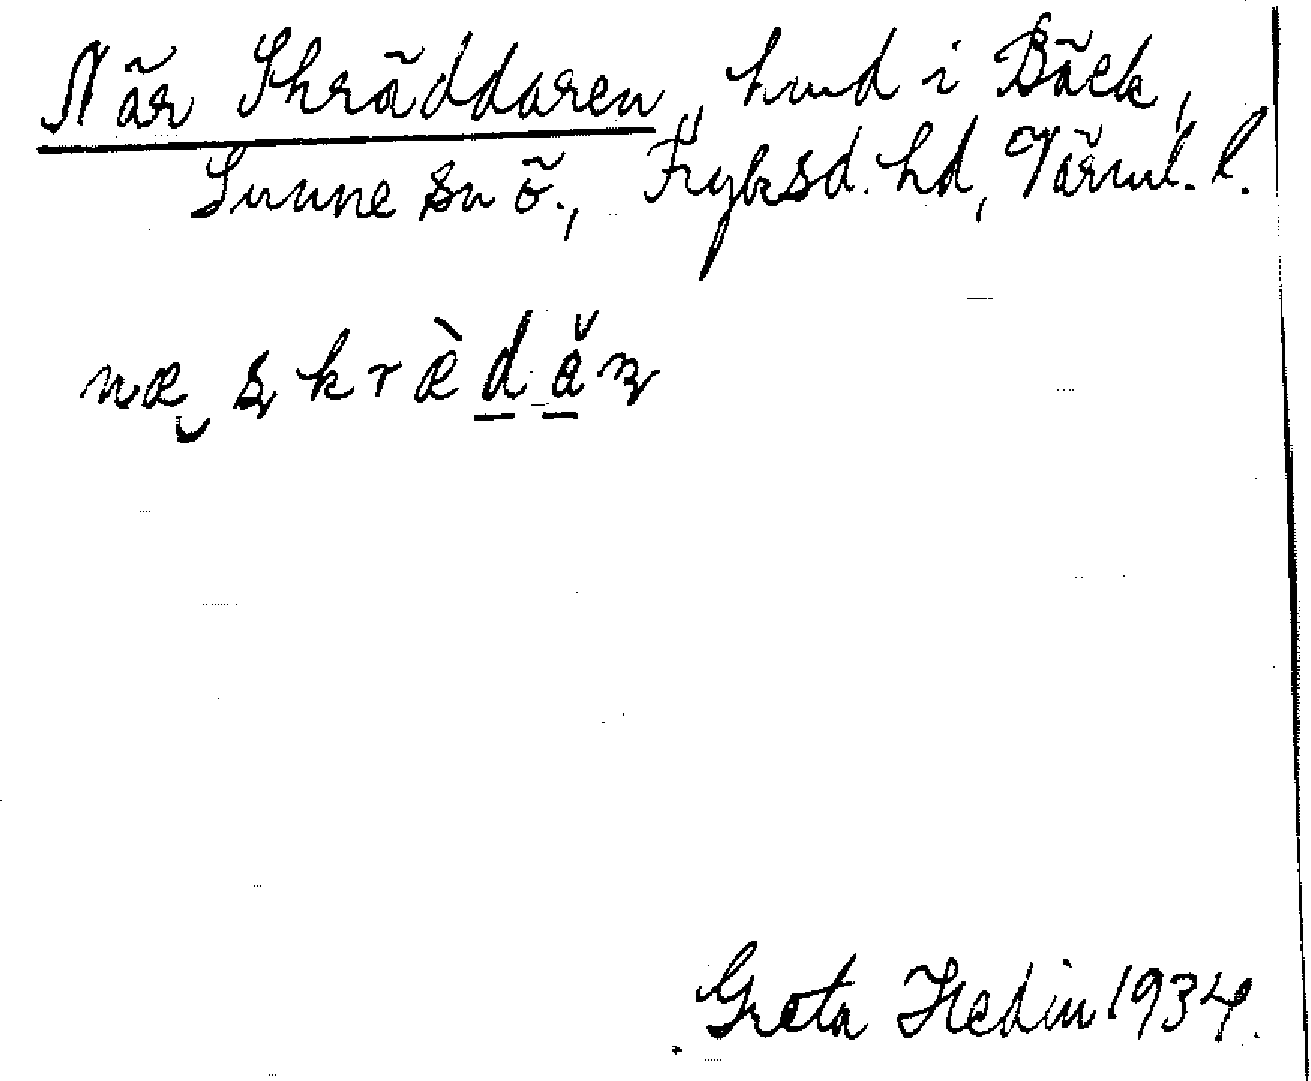 När Skräddaren, hmd i Bäck,
Sunne sn ö., Fryksd. hd, Värml. l.
næ skræ̀dăn
Greta Hedin 1934.